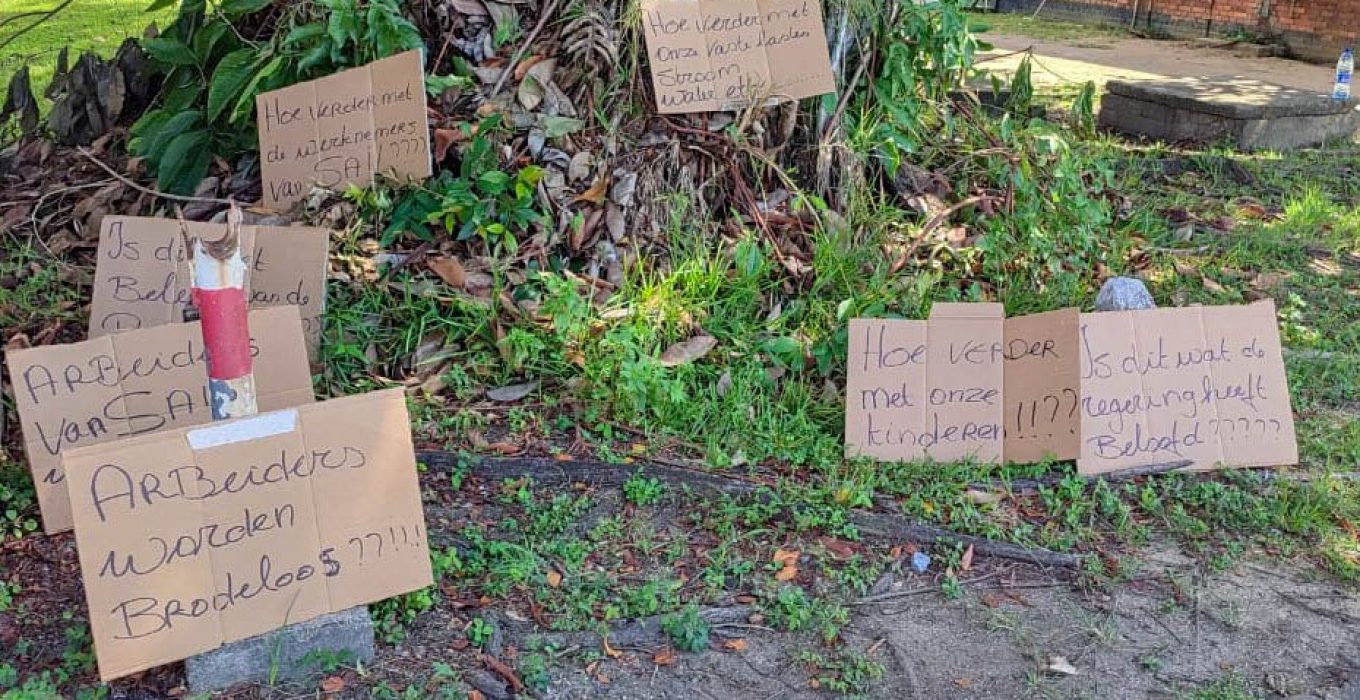 Hoe verder met
onze vaste lasten
Stroom
water etc
Hoe verder met
de werknemers
van SAIL ????
Is dit
Bele van de
ARBeiders
Van SAI
ARBeiders
worden
Brodeloos ??!!!
Hoe VERDER
met onze
kinderen !!??
Is dit wat de
regering heeft
Beloofd ?????